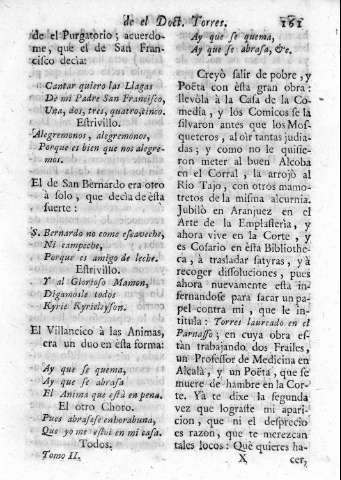 de el Doct. Torres. 161
de el Purgatorio; acuerdo-
me, que el de San Fran-
cisco decia:
Cantar quiero las Llagas
De mi Padre San Francisco,
Una, dos, tres, quatro, cinco.
Estrivillo.
Alegremonos, alegremonos,
Porque es bien que nos alegre-
mos.
El de San Bernardo era otro
à solo, que decìa de èsta
suerte:
S. Bernardo no come escaveche,
Ni campeche,
Porque es amigo de leche.
Estrivillo.
Y al Glorioso Mamon,
Digamosle todos
Kyrie Kyrieleyson.
El Villancico à las Animas,
era un duo en èsta forma:
Ay que se quema,
Ay que se abrasa
El Anima que està en pena.
El otro Choro.
Pues abrasese enhorabuna,
Que yo me estoi en mi casa.
Todos.
Tomo II.
Ay que se quema,
Ay que se abrasa, &c.
Creyò salir de pobre, y
Poëta con èsta gran obra:
llevòla à la Casa de la Co-
media, y los Comicos se la
silvaron antes que los Mos-
queteros, al oìr tantas judia-
das; y como no le quisie-
ron meter al buen Alcoba
en el Corral, la arrojò al
Rio Tajo, con otros mamo-
tretos de la misma alcurnia.
Jubilò en Aranjuez en el
Arte de la Emplasteria, y
ahora vive en la Corte, y
es Cosario en èsta Bibliothe-
ca, à trasladar satyras, y à
recoger dissoluciones, pues
ahora nuevamente està in-
fernandose para sacar un pa-
pel contra mi, que le in-
titula: Torres laureado en el
Parnasso; en cuya obra es-
tàn trabajando dos Frailes,
un Professor de Medicina en
Alcalà, y un Poëta, que se
muere de hambre en la Cor-
te. Yà te dixe la segunda
vez que lograste mi apari-
cion, que ni el desprecio
es razon, que te merezcan
tales locos: Què quieres ha-
X cer,